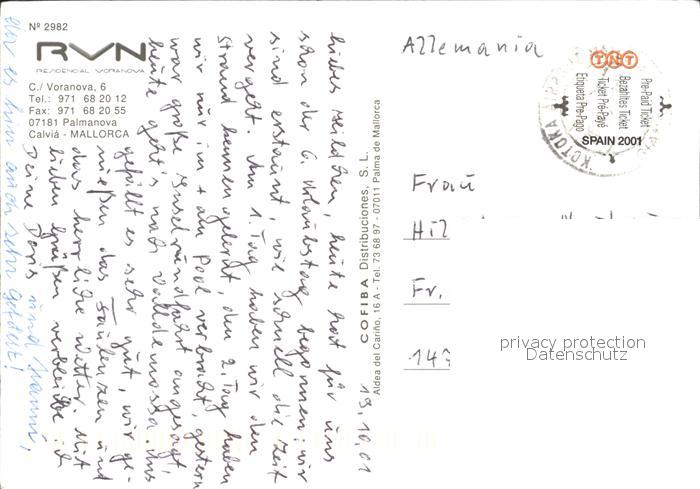 Nº 2982
RVN
RESIDENCIAL VORANOVA
C./ Voranova, 6
Tel.: 971 68 20 12
Fax: 971 68 20 55
07181 Palmanova
Calviá - MALLORCA
liebes Hildchen, heute hat für uns
schon der 6. Urlaubstag begonnen, wir
sind erstaunt, wie schnell die Zeit
vergeht. Am 1. Tag haben wir den
Strand kennengelernt, den 2. Tag haben
wir nur im + am Pool verbracht, gestern
war große Inselrundfahrt angesagt,
heute geht's nach Valldemossa. Uns
gefällt es sehr gut, wir ge-
nießen das Faulenzen und
das herrliche Wetter. Mit
lieben Grüßen verbleibe
Deine Doris und
es hier auch sehr gefällt!
COFIBA Distribuciones, S. L.
Aldea del Cariño, 16 A - Tel. 73 68 97 - 07011 Palma de Mallorca
19.10.01
Allemania
TNT
Pre-Paid Ticket
Bezahltes Ticket
Ticket Pré-Payé
Etiqueta Pre-Pago
SPAIN 2001
Frau
Hil
Fr.
14
privacy protection
Datenschutz